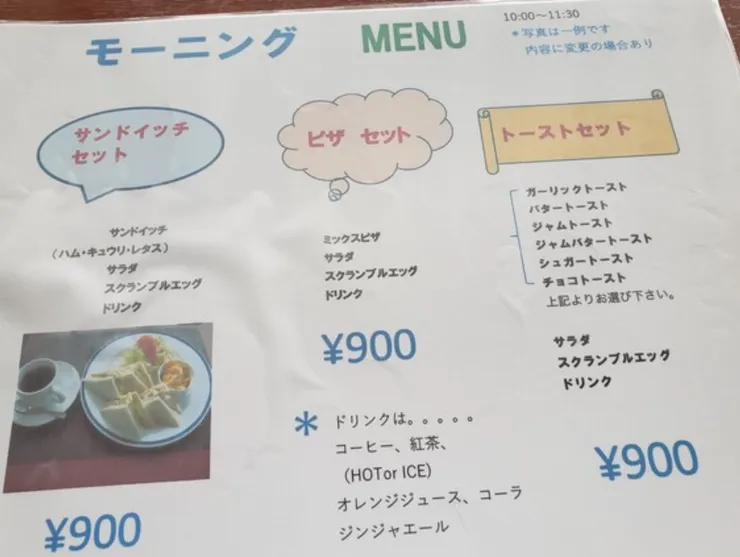 モーニング MENU
10:00～11:30
＊写真は一例です
内容に変更の場合あり
サンドイッチ
セット
サンドイッチ
（ハム・キュウリ・レタス）
サラダ
スクランブルエッグ
ドリンク
¥900
ピザ セット
ミックスピザ
サラダ
スクランブルエッグ
ドリンク
¥900
＊ドリンクは。。。。。
コーヒー、紅茶、
（HOT or ICE）
オレンジジュース、コーラ
ジンジャエール
トーストセット
ガーリックトースト
バタートースト
ジャムトースト
ジャムバタートースト
シュガートースト
チョコトースト
上記よりお選び下さい。
サラダ
スクランブルエッグ
ドリンク
¥900